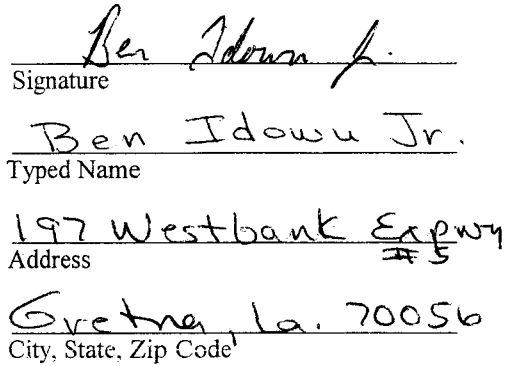 Ben Idowu Jr.
Signature
Ben Idowu Jr.
Typed Name
197 Westbank Expwy
#5
Address
Gretna, La. 70056
City, State, Zip Code